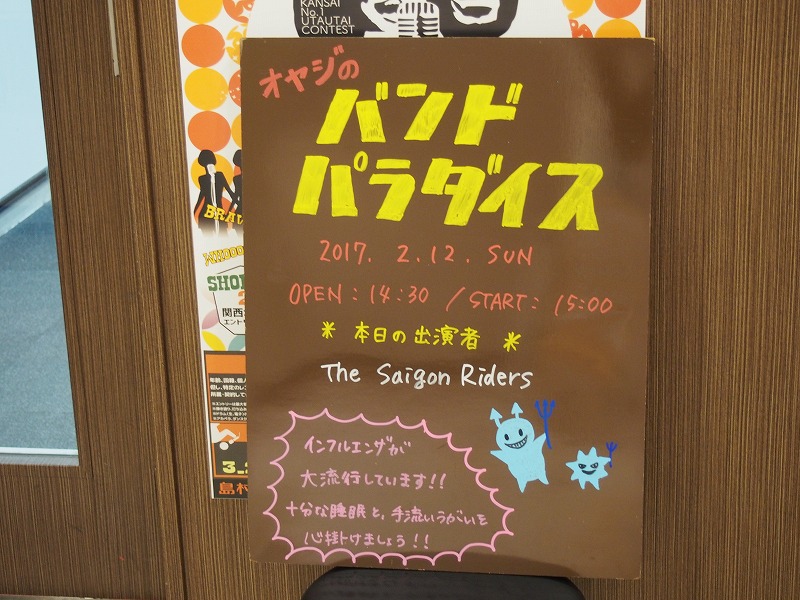 KANSAI
No.1
UTAUTAI
CONTEST
オヤジの
バンド
パラダイス
2017. 2.12. SUN
OPEN: 14:30 / START: 15:00
* 本日の出演者 *
The Saigon Riders
インフルエンザが
大流行しています!!
十分な睡眠と、手流いうがいを
心掛けましょう!!
SHO
関西
エント